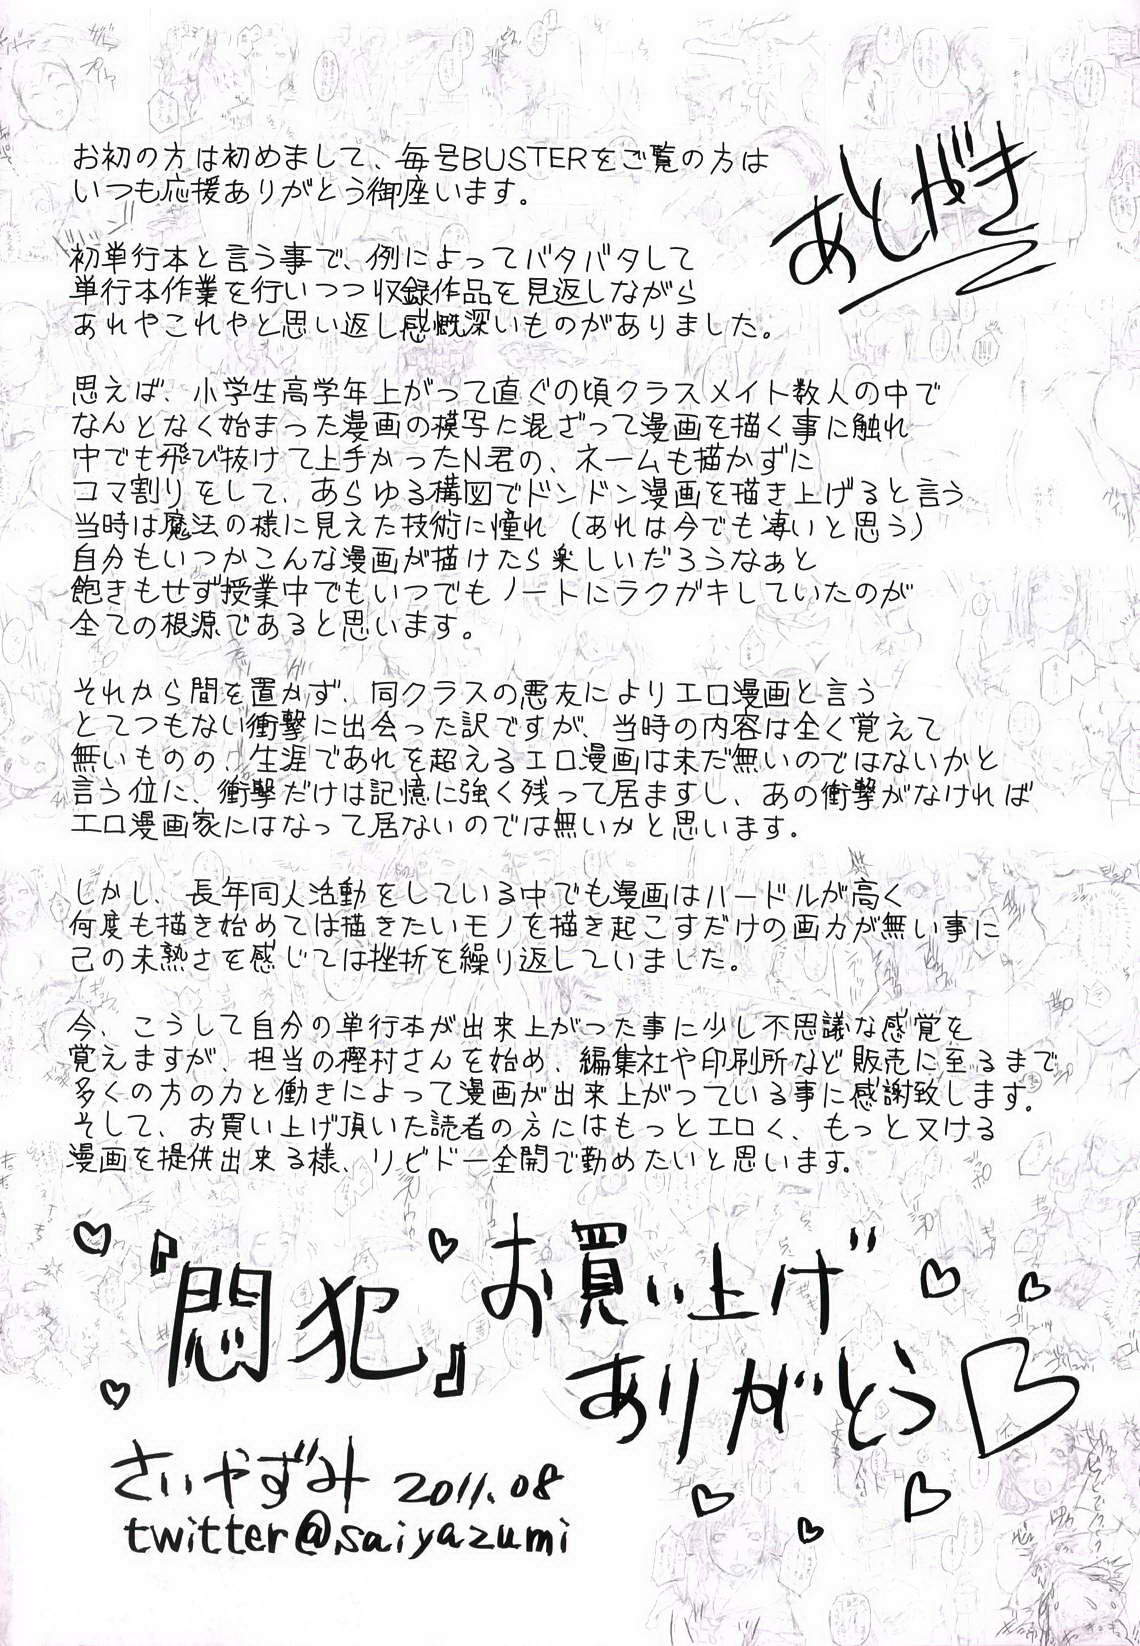 あとがき
お初の方は初めまして、毎号BUSTERをご覧の方は
いつも応援ありがとう御座います。
初単行本と言う事で、例によってバタバタして
単行本作業を行いつつ収録作品を見返しながら
あれやこれやと思い返し感慨深いものがありました。
思えば、小学生高学年上がって直ぐの頃クラスメイト数人の中で
なんとなく始まった漫画の模写に混ざって漫画を描く事に触れ
中でも飛び抜けて上手かったN君の、ネームも描かずに
コマ割りをして、あらゆる構図でドンドン漫画を描き上げると言う
当時は魔法の様に見えた技術に憧れ（あれは今でも凄いと思う）
自分もいつかこんな漫画が描けたら楽しいだろうなぁと
飽きもせず授業中でもいつでもノートにラクガキしていたのが
全ての根源であると思います。
それから間を置かず、同クラスの悪友によりエロ漫画と言う
とてつもない衝撃に出会った訳ですが、当時の内容は全く覚えて
無いものの、生涯であれを超えるエロ漫画は未だ無いのではないかと
言う位に、衝撃だけは記憶に強く残って居ますし、あの衝撃がなければ
エロ漫画家にはなって居ないのでは無いかと思います。
しかし、長年同人活動をしている中でも漫画はハードルが高く
何度も描き始めては描きたいモノを描き起こすだけの画力が無い事に
己の未熟さを感じては挫折を繰り返していました。
今、こうして自分の単行本が出来上がった事に少し不思議な感覚を
覚えますが、担当の樫村さんを始め、編集社や印刷所など販売に至るまで
多くの方の力と働きによって漫画が出来上がっている事に感謝致します。
そして、お買い上げ頂いた読者の方にはもっとエロく、もっと又ける
漫画を提供出来る様、リビドー全開で勤めたいと思います。
『悶犯』お買い上げ
ありがとう
さいやずみ 2011.08
twitter@saiyazumi